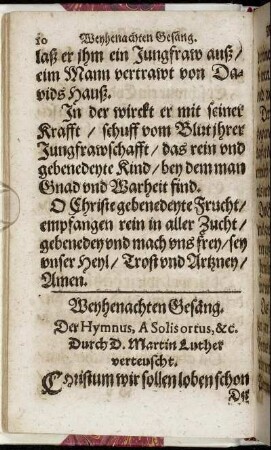 10 Weyhenachten Gesäng.
laß er jhm ein Jungfraw auß/
eim Mann vertrawt von Da-
vids Hauß.
In der wirckt er mit seiner
Krafft / schuff vom Blut jhrer
Jungfrawschafft / das rein vnd
gebenedeyte Kind / bey dem man
Gnad vnd Warheit find.
O Christe gebenedeyte Frucht/
empfangen rein in aller Zucht/
gebenedey vnd mach vns frey / sey
vnser Heyl / Trost vnd Artzney/
Amen.
Weyhenachten Gesäng.
Der Hymnus, A Solis ortus, &c.
Durch D. Martin Luther
verteuscht.
Christum wir sollen loben schon
Der